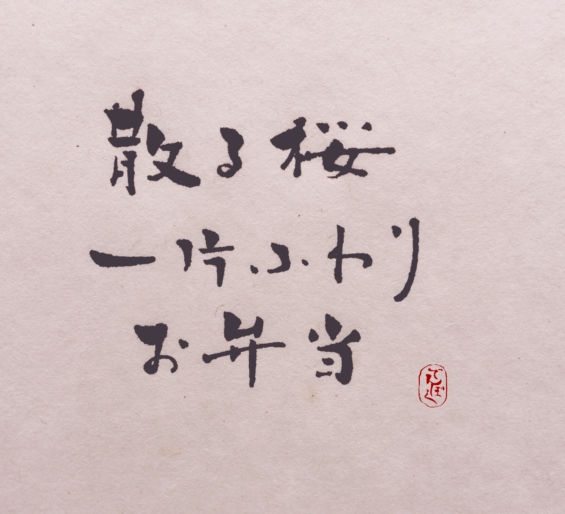 散る桜
一片ふわり
お弁当